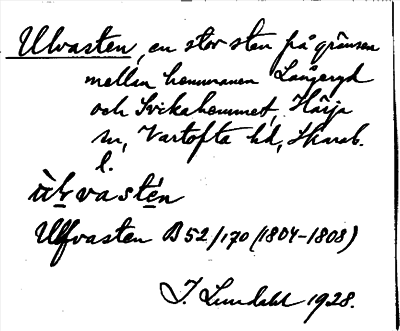 Ulvasten, en stor sten på gränsen
mellan hemmanen
och Svikahemmet, Härja
sn, Vartofta hd, Skarab.
l.
Ulfvasten B 52/170 (1804-1808)
J. Lundahl 1928.